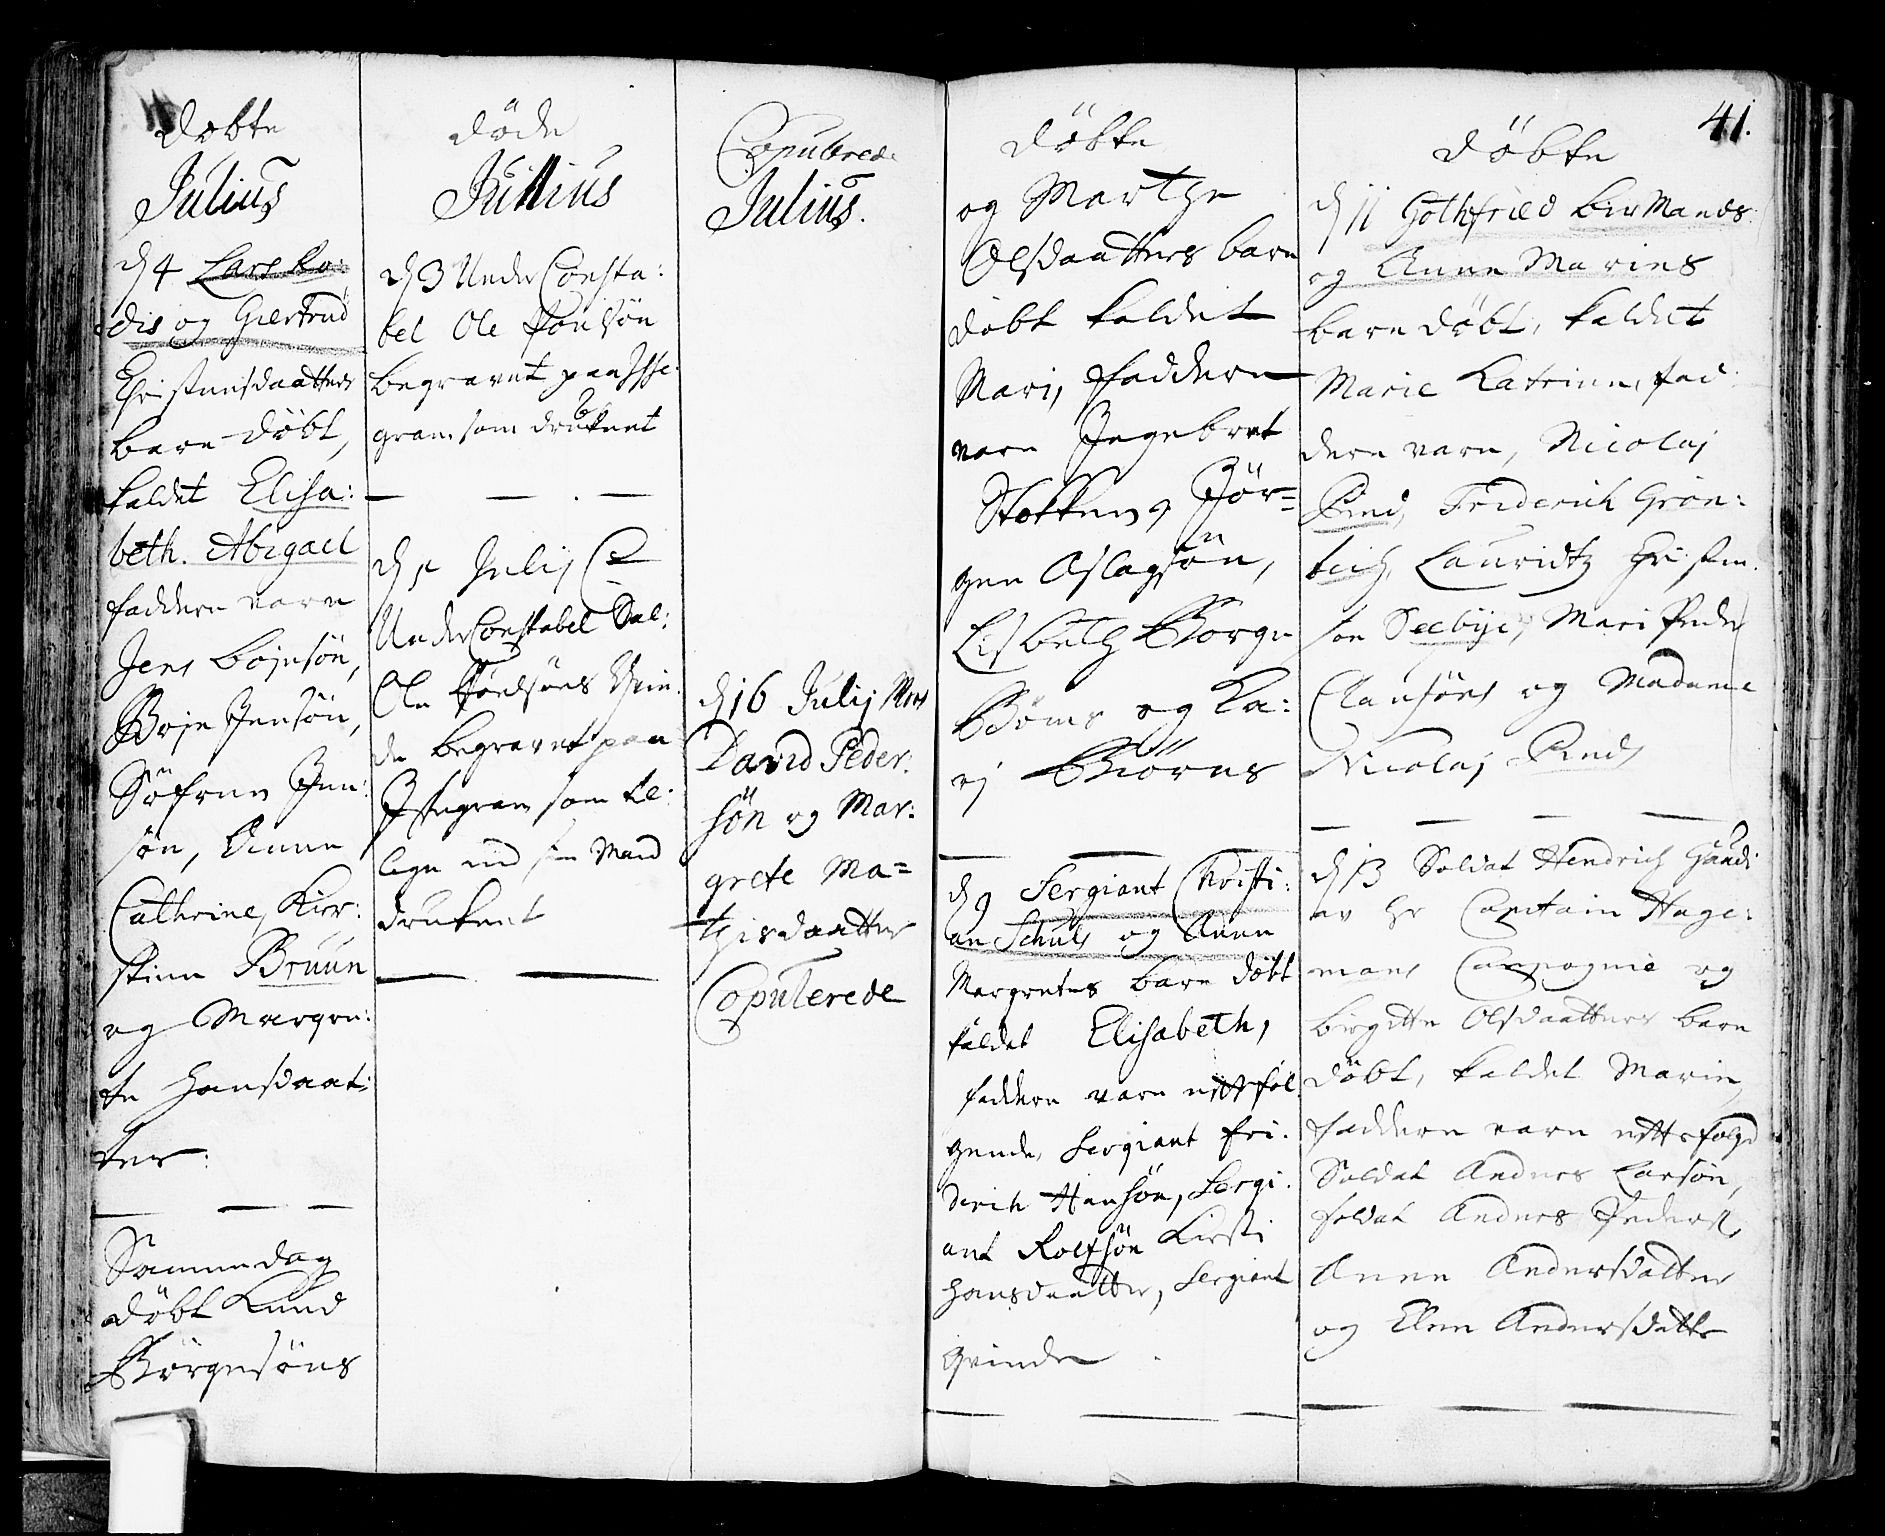 Døbte
Julius
d 4 Lars Lo:
dis og Giertrud
Christensdaatters
barn døbt,
kaldet Elisa:
beth. Abigael
faddere vare
Jens bojesön,
Boje Jensön,
Söfren Jen:
søn, Anne
Cathrine, Kier:
stine Bruun
og Margre:
te Hansdaat:
ter.
Samme dag
döbt Knud
Börgesöns
döde
Julius
d 3 Under Consta:
bel Ole
begravet paa
grav. som druknet
d 5 Julij
Under Constabel Sal:
Ole
de begravet paa
som til:
lige med sin Mand
druknet
Copulerede
Julius.
d 16 Julij
David Peder:
sön og Mar:
grete Ma=
thisdaatter
Copulerede
döbte
og Marthe
Olsdaatters barn
döbt kaldet
Mari, faddere
vare Ingebret
Stokken, Jör=
gen Aslagsön,
Lisbeth Borge
og Ka:
rj Biörns
d 9 Sergiant Christi:
an Schuls og Anne
Margretes barn döbt
kaldet Elisabeth,
faddere vare efterföl
gende, Sergiant Fri:
derich Hansön, Sergi:
ant Rolfsön Kirsti
Hansdaatter, Sergiant
41.
döbte
d 11 Gothfried birMands
og Anne Maries
barn döbt, kaldet
Marie Katrine, fad:
dere vare, Nicolaj
Pind, Friderich Grön:
bech, Lauridtz Christen:
sen Seebye, Mari Peder
Clausöns og Madame
Nicolaj Pinds
d 13 Soldat Hendrich
av Hr Capitain Hage:
mans Compagnie og
Birgitte Olsdaatters barn
döbt, kaldet Marie,
faddere vare efterfölgd
Soldat Anders Larsön,
soldat Anders Peders.
Anne Andersdatter
og Elen Andersdatter